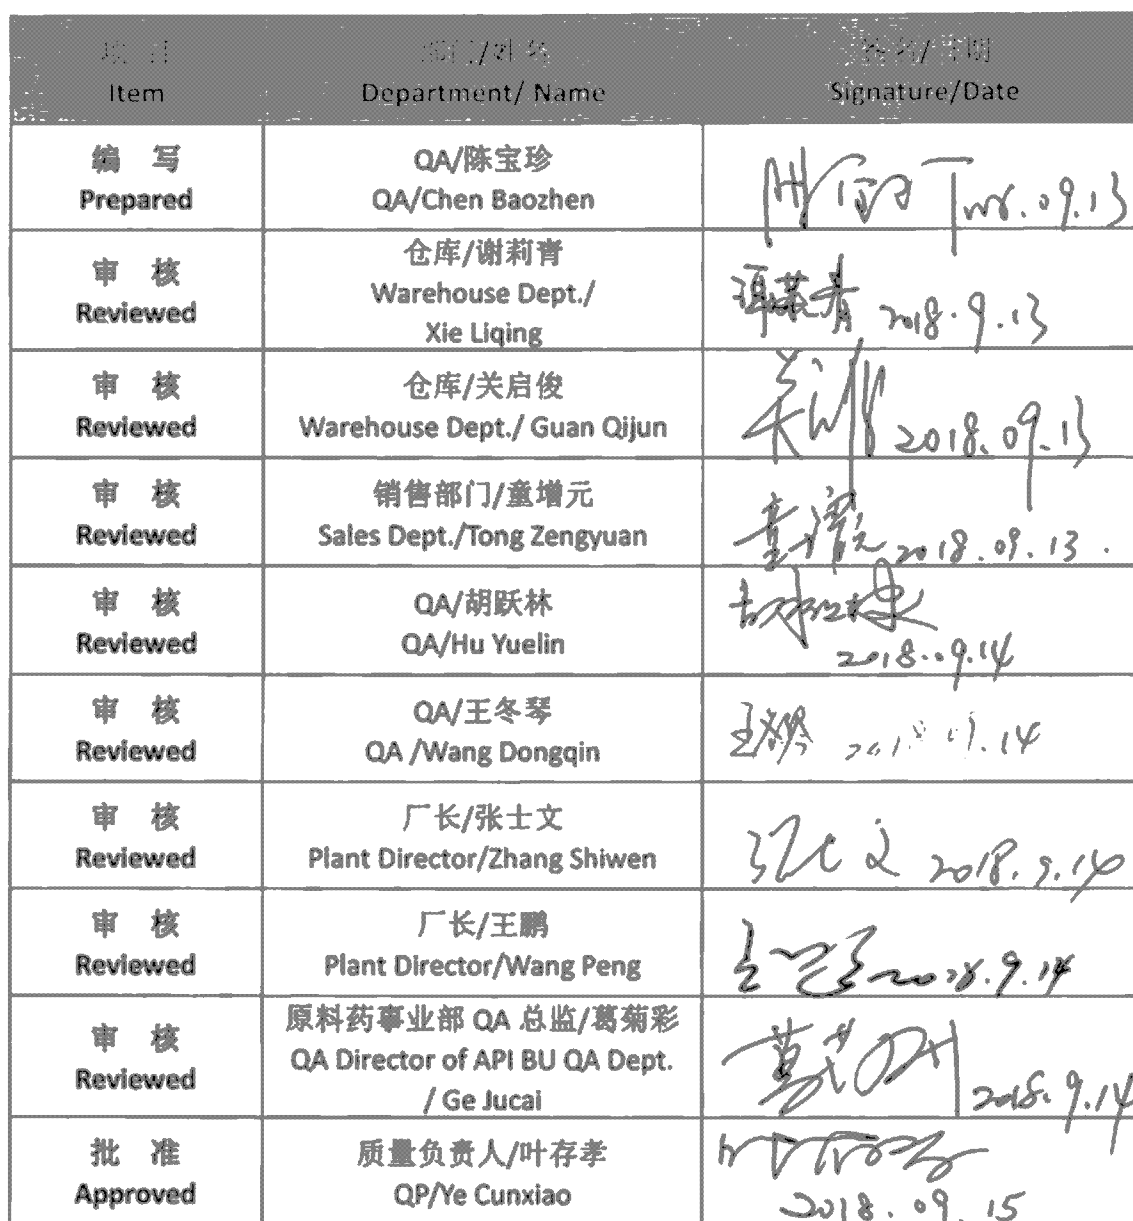 项 目
部门/姓名
签名/日期
Item
Department/ Name
Signature/Date
编 写
Prepared
QA/陈宝珍
QA/Chen Baozhen
09.13
审 核
Reviewed
仓库/谢莉青
Warehouse Dept./
Xie Liqing
2018.9.13
审 核
Reviewed
仓库/关启俊
Warehouse Dept./ Guan Qijun
2018.09.13
审 核
Reviewed
销售部门/童增元
Sales Dept./Tong Zengyuan
2018.09.13.
审 核
Reviewed
QA/胡跃林
QA/Hu Yuelin
2018.09.14
审 核
Reviewed
QA/王冬琴
QA /Wang Dongqin
2018.09.14
审 核
Reviewed
厂长/张士文
Plant Director/Zhang Shiwen
2018.9.14
审 核
Reviewed
厂长/王鹏
Plant Director/Wang Peng
2018.9.14
审 核
Reviewed
原料药事业部 QA 总监/葛菊彩
QA Director of API BU QA Dept.
/ Ge Jucai
2018.9.14
批 准
Approved
质量负责人/叶存孝
QP/Ye Cunxiao
2018.09.15